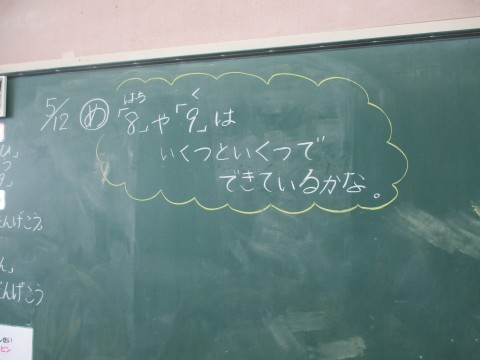 5/12 め 「8」や「9」は
はち く
いくつといくつで
できているかな。
んげこう
んげこう